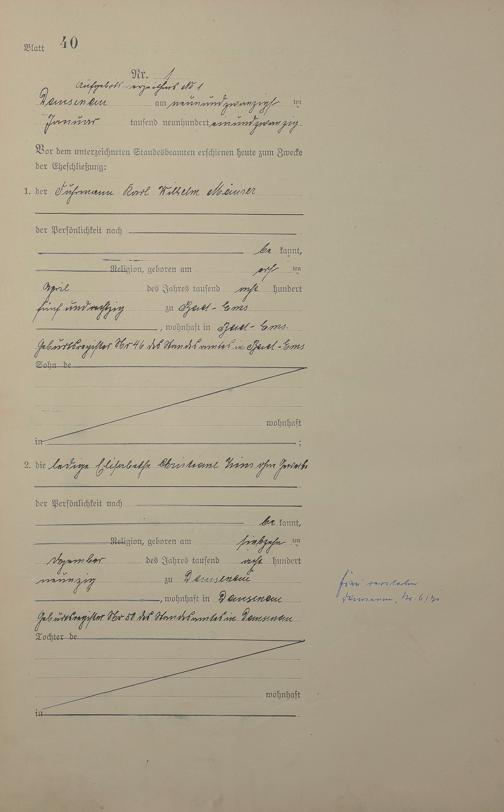 Blatt 40
Nr. 1
Aufgebots verzeichnis No 1
Dausenau am neunundzwanzigsten
Januar tausend neunhundert einundzwanzig
Vor dem unterzeichneten Standesbeamten erschienen heute zum Zwecke
der Eheschließung:
1. der Fuhrmann Karl Wilhelm
der Persönlichkeit nach
be kannt,
Religion, geboren am ten
April des Jahres tausend acht hundert
fünfundachtzig zu Bad-Ems
, wohnhaft in Bad-Ems
Geburtsregister Nr 46 des Standesamtes in Bad-Ems
Sohn de
wohnhaft
in ;
2. die ledige Elisabethe Christiane ohne
der Persönlichkeit nach
be kannt,
Religion, geboren am siebzehn ten
Dezember des Jahres tausend acht hundert
neunzig zu Dausenau
, wohnhaft in Dausenau
Geburtsregister Nr 50 des Standesamtes in Dausenau
Tochter de
wohnhaft
in
Frau verstorben
Dausenau, Nr. 6/70